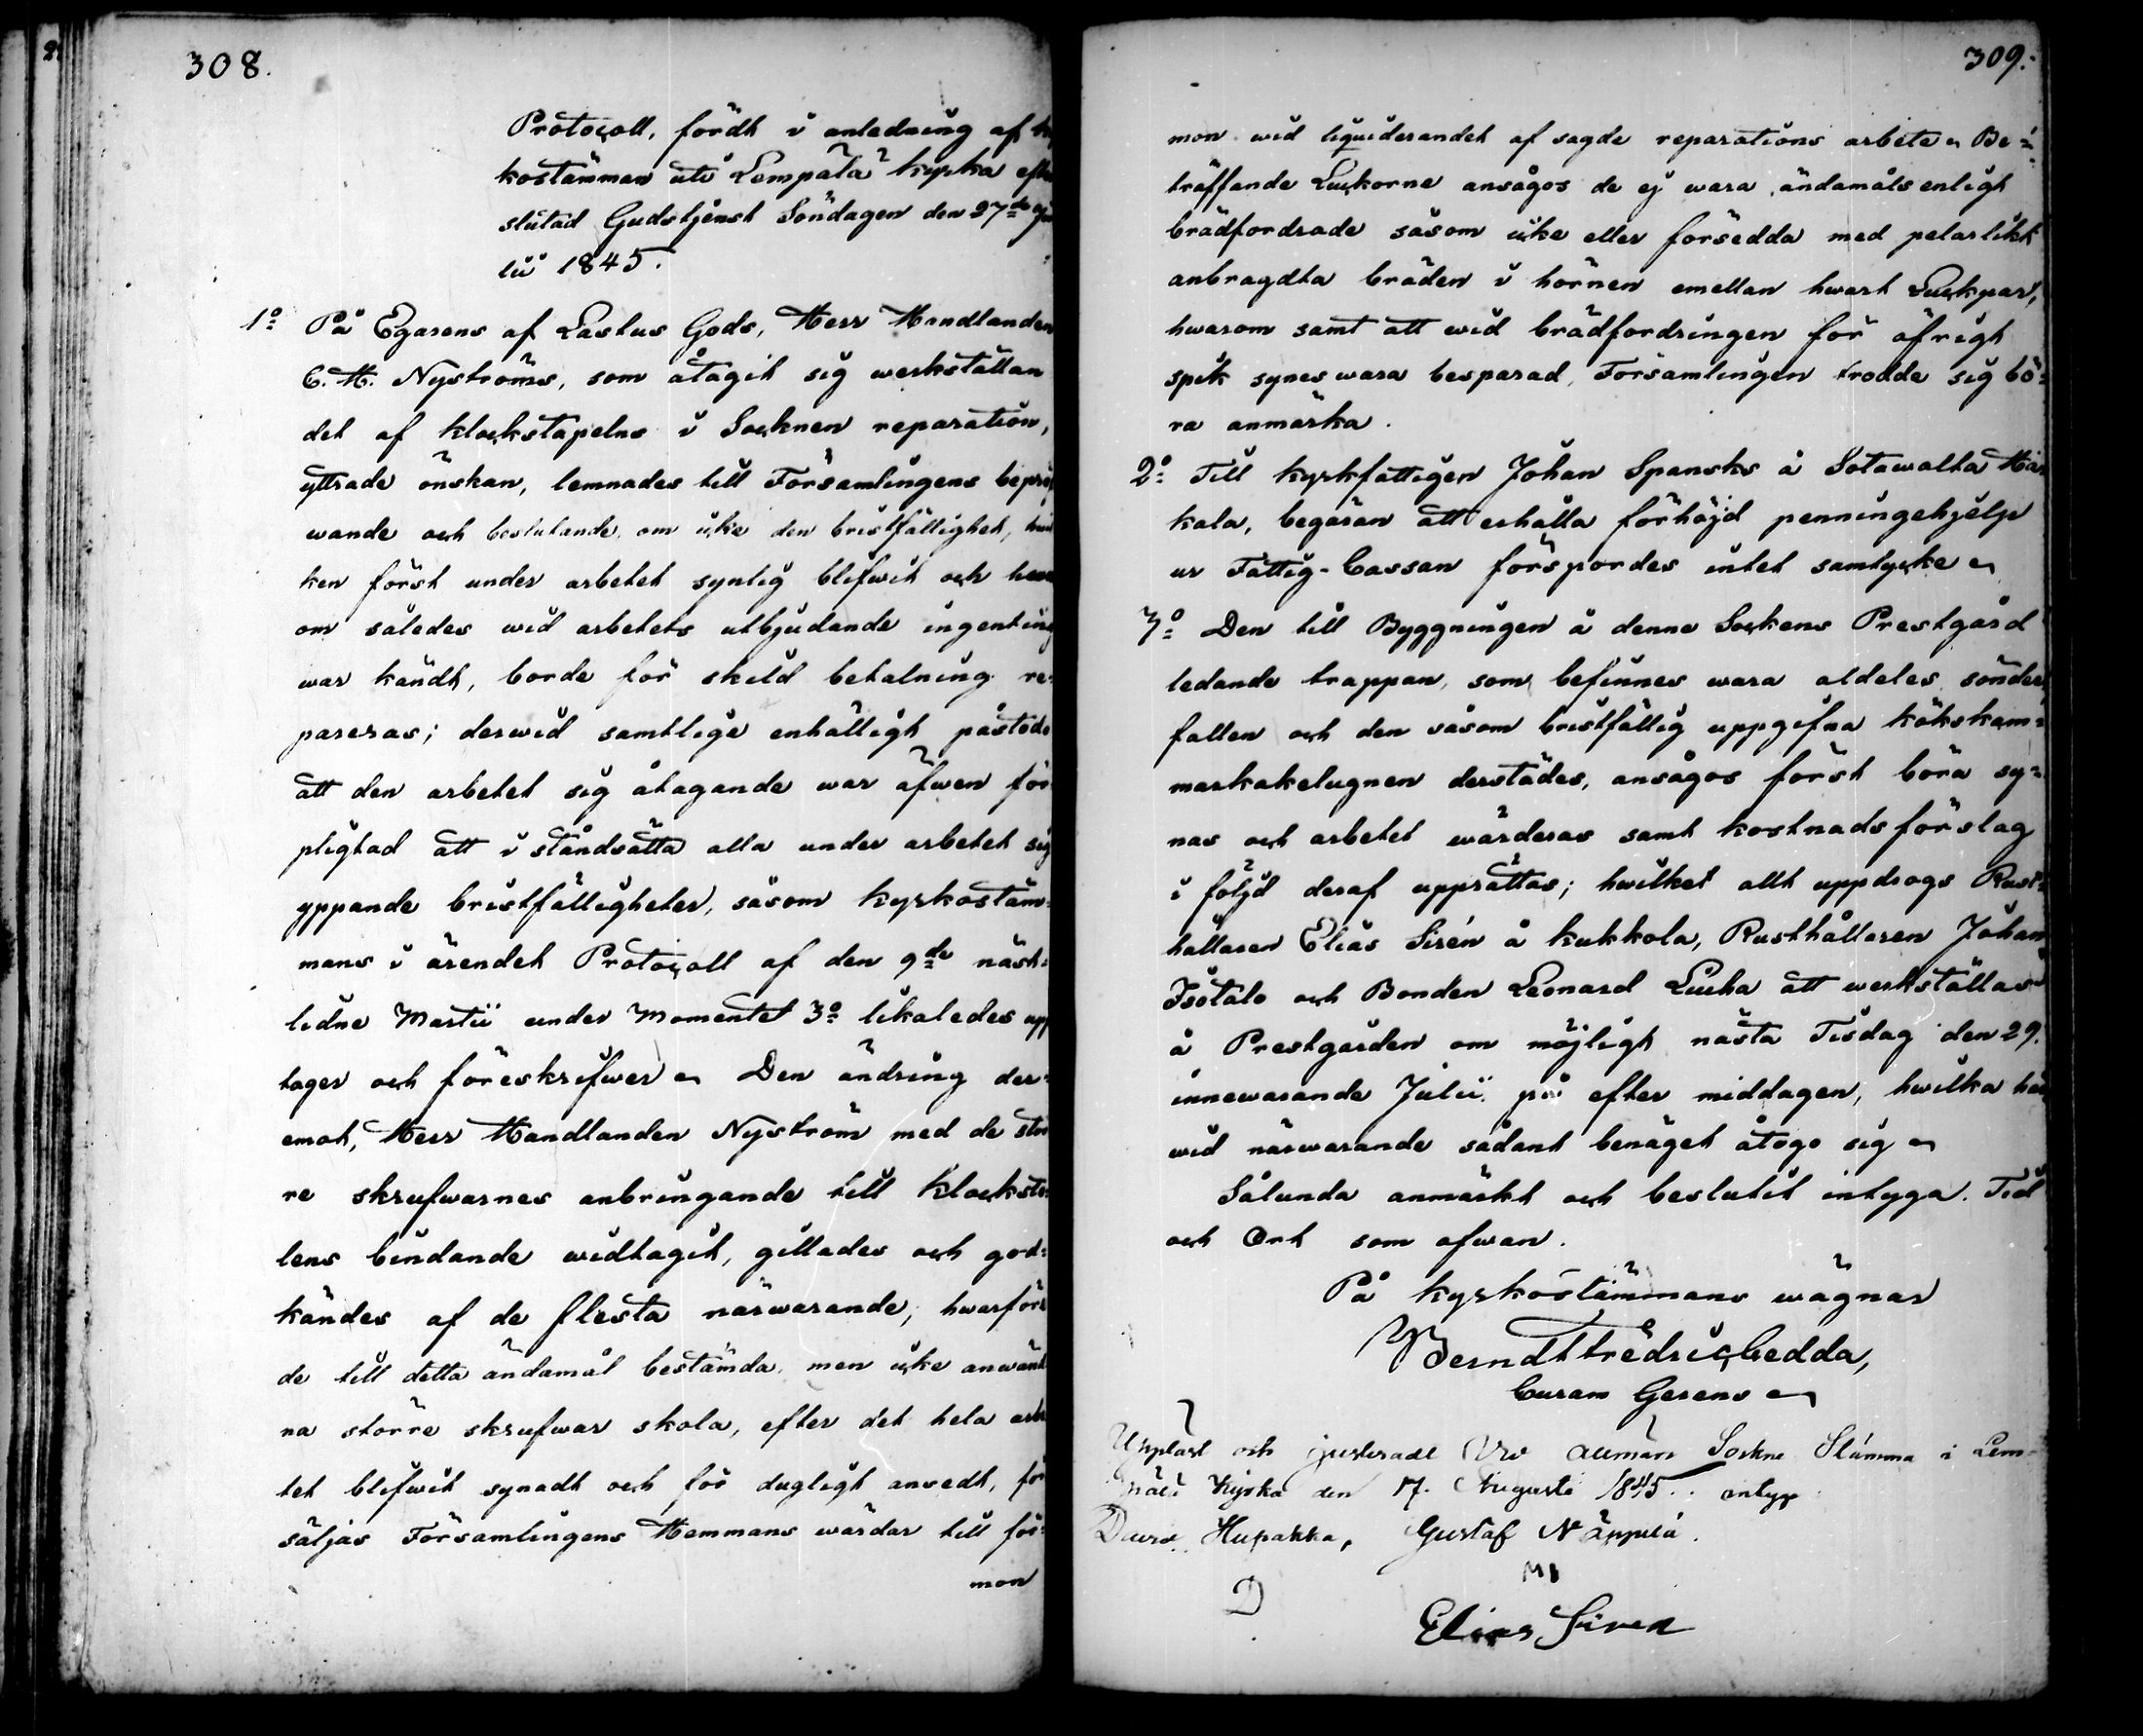 308.
Protocoll, fördt i anledning af ky
kostämman uti Lempälä kyrka efte
slutad Gudstjenst Söndagen den 27de Ju
lii 1845.
1o På Egarens af Lastus Gods, Herr Handlanden
C. H. Nyströms, som åtagit sig werkställan
det af klockstapelns i Socknen reparation,
yttrade önskan, lemnades till Församlingens beprö
wande och beslutande, om icke den bristfällighet, hvil
ken först under arbetet synlig blifwit och hwar
om således wid arbetets utbjudande ingenting
war kändt, borde för skild betalning re¬
pareras; derwid samtlige enhälligt påstodo
att den arbetet sig åtagande war äfwen för
pligtad att i ståndsätta alla under arbetet sig
yppande bristfälligheter, såsom kyrkostäm¬
mans i ärendet Protocoll af den 9de näst¬
lidne Martii under Momentet 3o likaledes upp
tager och föreskrifwer. Den ändring der¬
emot, Herr Handlanden Nyström med de stör
re skrufwarnes anbringande till klocksto
lens bindande widtagit, gillades och god¬
kändes af de flesta närwarande, hwarföre
de till detta ändamål bestämda, men icke anwänd
na större skrufwar skola, efter det hela arbe
tet blifwit synadt och för dugligt ansedt, för
säljas Församlingens Hemmans wärdar till för¬
mon
309.
mon wid liquiderandet af sagde reparations arbete. Be¬
träffande Luckorne ansågos de ej wara ändamåls enligt
brädfordrade såsom icke eller försedda med pelarlikt
anbragdta bräden i hörnen emellan hwart Luckpar,
hwarom samt att wid brädfordringen för öfrigt
spik synes wara besparad, Församlingen trodde sig bö¬
ra anmärka.
2o Till kyrkfattigen Johan Spansks å Sotawalta Här
kala, begäran att erhålla förhöjd penningehjelp
ur Fattig-Cassan förspordes intet samtycke.
3o Den till Byggningen å denne Sockens Prestgård
ledande trappan, som befinnes wara aldeles sönder
fallen och den såsom bristfällig uppgifna kökskam¬
markakelugnen derstädes, ansågos först böra sy¬
nas och arbetet wärderas samt kostnads förslag
i följd deraf upprättas; hwilket allt uppdrogs Rust¬
hållaren Elias Sirén å Kukkola, Rusthållaren Johan
Isotalo och Bonden Leonard Lucha att werkställas
å Prestgården om möjligt nästa Tisdag den 29.
innewarande Julii på efter middagen, hwilka här
wid närwarande sådant benäget åtogo sig.
Sålunda anmärkt och beslutit intyga. Tid
och Ort som ofwan.
På kyrkostämmans wägnar
Berndt Fredric Gedda,
Curam Gerens
Uppläst och justeradt wid allmän Sockne Stämma i Lem¬
pälä kyrka den 17. Augusti 1845. intyga
David Hupakka, Gustaf Näppilä.
D
Elias Siren